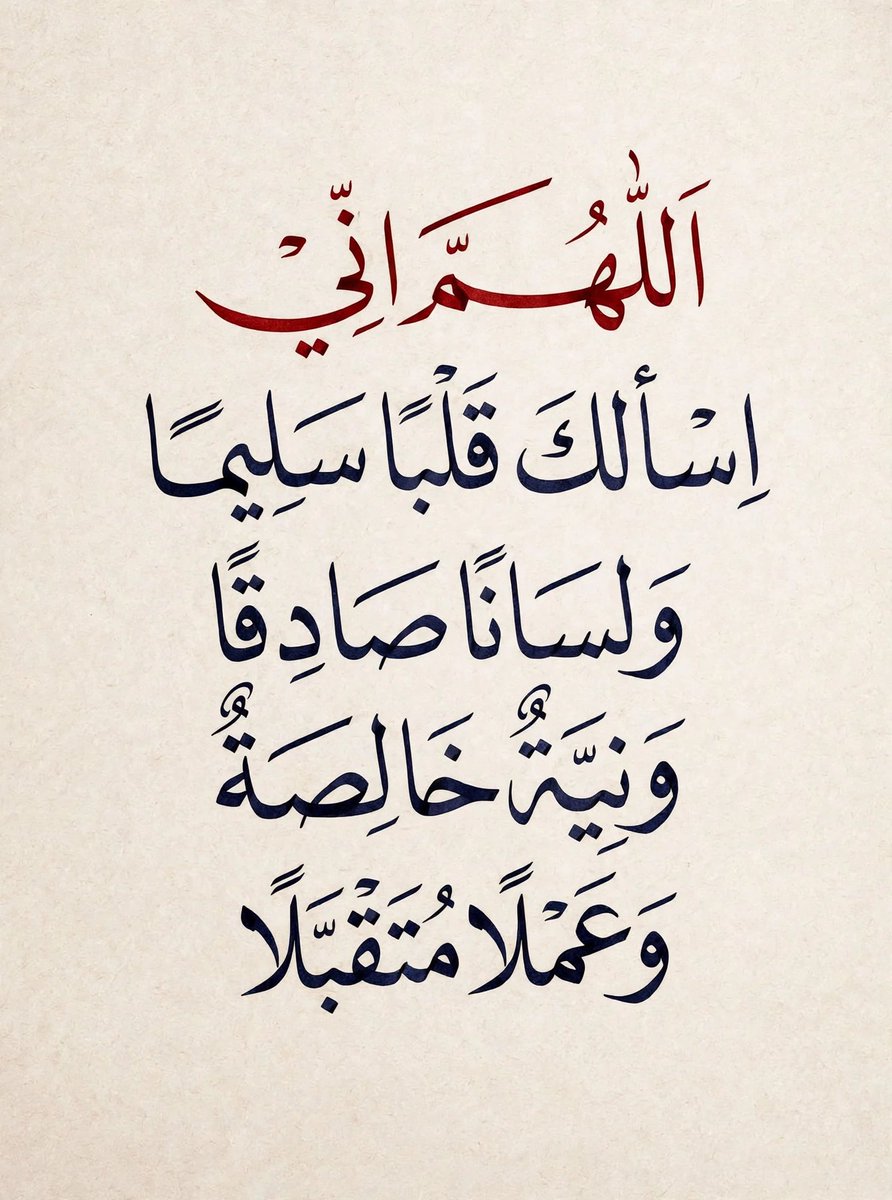 اَللّٰهُمَّ اِنِّيْ
اِسْألكَ قَلْبًا سَلِيمًا
وَلسَانًا صَادِقًا
وَنِيَّةٌ خَالِصَةٌ
وَعَمْلًا مُتَقْبَّلًا